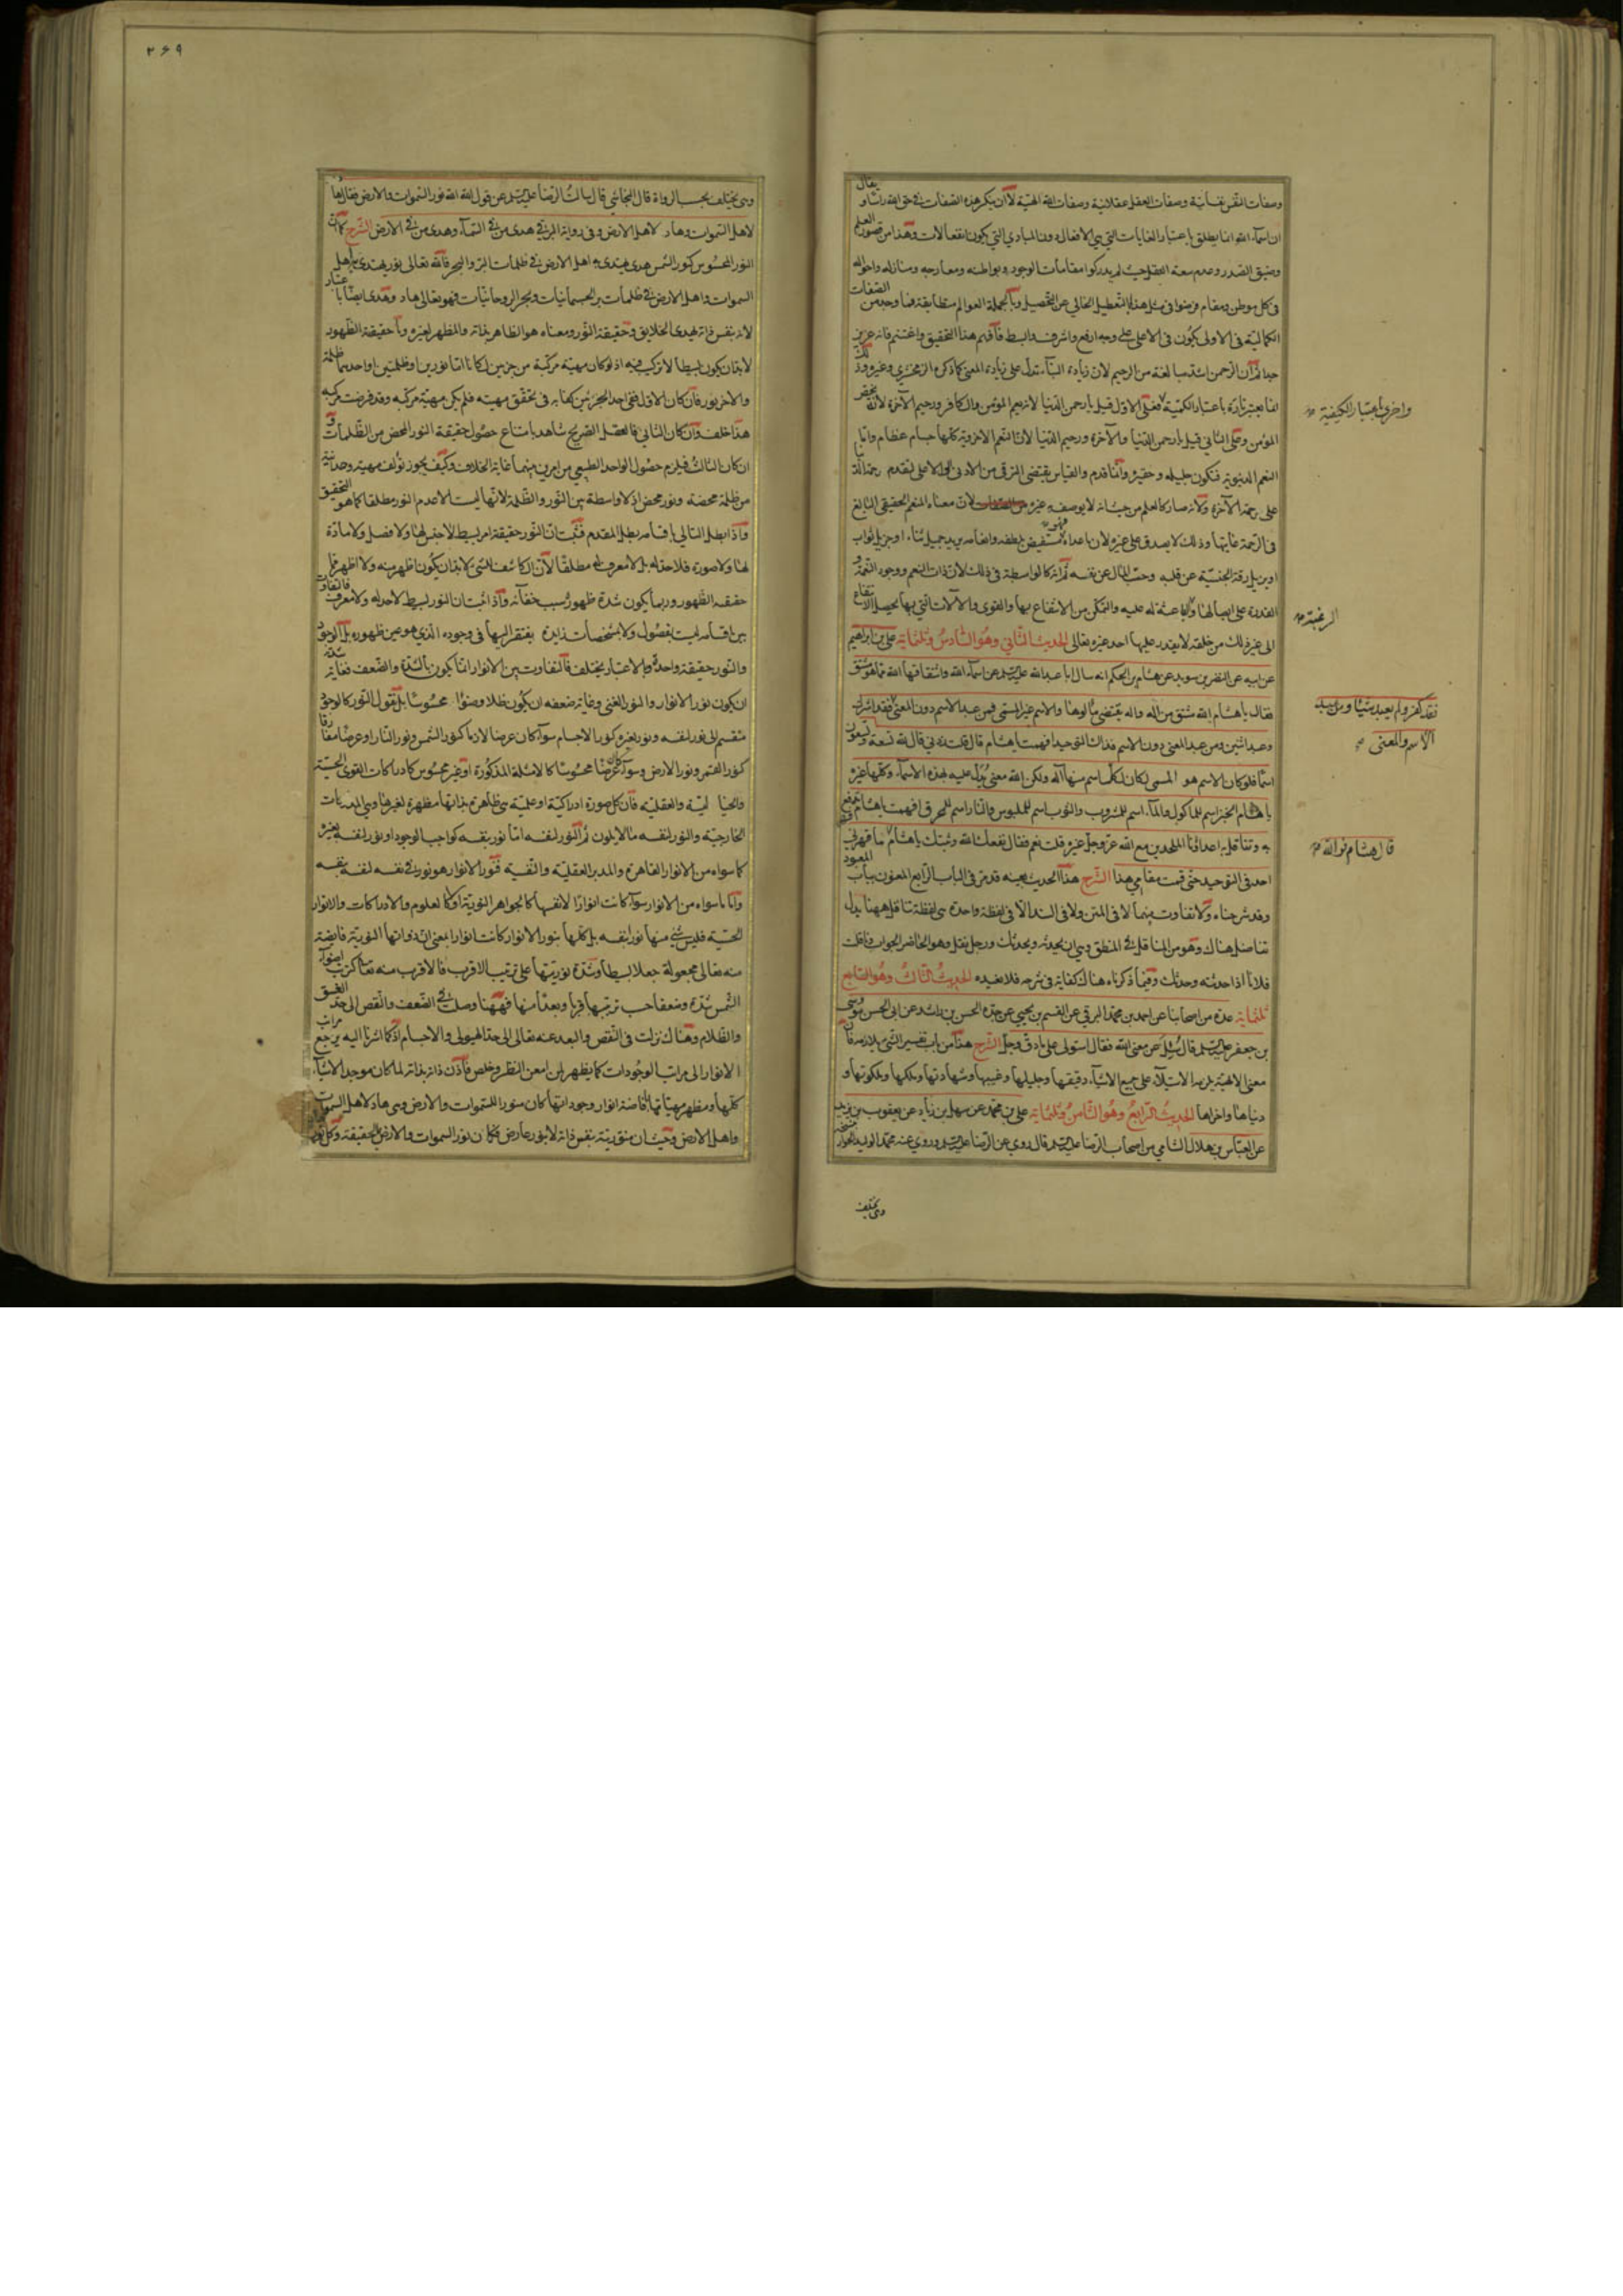 وصفات النفس نفسانية وصفات العقل عقلانية وصفات الله الهية لا ان ينكر هذه الصفات في حق الله
ان اسماء الله انما يطلق باعتبار الغايات التي هي الافعال دون المبادي التي يكون انفعالات وهذا من قصور العلم
وضيق الصدر وعدم سعة العقل حيث لم يدركوا مقامات الوجود وبواطنه ومعارجه ومنازله واحواله
في كل موطن ومقام فوقعوا في مثل هذا التعطيل الخالي عن التحصيل وبالجملة العوالم متطابقة فما وجد من الصفات
الكمالية في الاولى يكون في الاعلى على وجه ارفع واشرف وابسط فافهم هذا التحقيق واغتنم فانه عزيز
جدا ثم ان الرحمن اشد مبالغة من الرحيم لان زيادة البناء تدل على زيادة المعنى كما ذكره الزمخشري وغيره وذلك
انما يعتبر تارة باعتبار الكمية فعلى الاول قيل يا رحمن الدنيا لانه يعم المؤمن والكافر ورحيم الآخرة لانه يخص
واخرى باعتبار الكيفية
المؤمن وعلى الثاني قيل يا رحمن الدنيا والآخرة ورحيم الدنيا لان النعم الاخروية كلها جسام عظام واما
النعم الدنيوية فتكون جليلة وحقيرة وانما قدم والقياس يقتضي الترقي من الادنى الى الاعلى لتقدم رحمة الدنيا
على رحمة الآخرة ولانه صار كالعلم من حيث انه لا يوصف به غيره لان معناه المنعم الحقيقي البالغ
في الرحمة غايتها وذلك لا يصدق على غيره لان ما عداه فهو مستفيض بلطفه وانعامه يريد جميل ثناء او جزيل ثواب
او يزيل رقة الجنسية عن قلبه وحب المال عن نفسه ثم انه كالواسطة في ذلك لان ذات النعم ووجود النعمة و
القدرة على ايصالها والداعية له عليه والتمكن من الانتفاع بها والقوى والآلات التي بها يحصل الانتفاع
الى غير ذلك من خلقه لا يقدر عليها احد غيره تعالى الحديث الثاني وهو السادس وثلثمائة علي بن ابراهيم
عن ابيه عن النضر بن سويد عن هشام بن الحكم انه سال ابا عبد الله عليه السلم عن اسماء الله واشتقاقها الله مما هو مشتق
فقال يا هشام الله مشتق من اله واله يقتضي مالوها والاسم غير المسمى فمن عبد الاسم دون المعنى فقد اشرك
فقد كفر ولم يعبد شيئا ومن عبد
الاسم والمعنى
وعبد اثنين ومن عبد المعنى دون الاسم فذاك التوحيد افهمت يا هشام قال قلت زدني قال لله تسعة وتسعون
اسما فلو كان الاسم هو المسمى لكان لكل اسم منها اله ولكن الله معنى يدل عليه بهذه الاسماء وكلها غيره
يا هشام الخبز اسم للماكول والماء اسم للمشروب والثوب اسم للملبوس والنار اسم للمحرق افهمت يا هشام فهما تدفع
به وتناقل به اعدائنا الملحدين مع الله عز وجل غيره قلت نعم فقال نفعك الله وثبتك يا هشام ما قهرني
قال هشام فوالله
احد في التوحيد حتى قمت مقامي هذا الشرح هذا الحديث بعينه قد مر في الباب الرابع المعنون بباب المعبود
وقد شرحناه ولا تفاوت بينهما لا في المتن ولا في السند الا في لفظة واحدة هي لفظة تناقل ههنا بدل
تناضل هناك وهو من المناقلة في المنطق وهي ان يحدثه ويحدثك ورجل نقل وهو الحاضر الجواب وناقلت
فلانا اذا حدثته وحدثك وفيما ذكرناه هناك كفاية في شرحه فلا نعيده الحديث الثالث وهو السابع
ثلثمائة عدة من اصحابنا عن احمد بن محمد البرقي عن القسم بن يحيى عن جده الحسن بن راشد عن ابي الحسن موسى
بن جعفر عليه السلم قال سئل عن معنى الله فقال استولى على ما دق وجل الشرح هذا من باب تفسير الشيء بلازمه فان
معنى الالهية يلزمه الاستيلاء على جميع الاشياء دقيقها وجليلها وغيبها وشهادتها وملكها وملكوتها و
دنياها واخراها الحديث الرابع وهو الثامن وثلثمائة علي بن محمد عن سهل بن زياد عن يعقوب بن يزيد
عن العباس بن هلال الشامي من اصحاب الرضا عليه السلم قال روي عن الرضا عليه السلم وروى عنه محمد الوليد
وهي يختلف
٣٦٩
وهي يختلف بحسب الرواة قال النجاشي قال سالت الرضا عليه السلم عن قول الله الله نور السموات والارض فقال هاد
لاهل السموات وهاد لاهل الارض وفي رواية البرقي هدى من في السماء وهدى من في الارض الشرح كما ان
النور المحسوس كنور الشمس هدى يهتدي به اهل الارض في ظلمات البر والبحر فالله تعالى نور يهتدي به اهل
السموات واهل الارض في ظلمات بر الجسمانيات وبحر الروحانيات فهو تعالى هاد وهدى ايضا باعتبار
لانه بنفس ذاته يهدي الخلايق وحقيقة النور ومعناه هو الظاهر بذاته والمظهر لغيره وما حقيقة الظهور
لابد ان يكون بسيطا لا تركيب فيه اذ لو كان مهية مركبة من جزئين لكانا اما نورين او ظلمتين او احدهما ظلمة
والاخر نور فان كان الاول ففي احد الجزئين كفاية في تحقق مهيته فلم يكن مهية مركبة وقد فرضت مركبة
هذا خلف وان كان الثاني فالعقل الصريح شاهد بامتناع حصول حقيقة النور المحض من الظلمات و
ان كان الثالث فيلزم حصول الواحد الطبيعي من امرين بينهما غاية الخلاف وكيف يجوز تؤلف مهية وحدانية
من ظلمة محضة ونور محض اذ لا واسطة بين النور والظلمة لانها ليست الا عدم النور مطلقا كما هو التحقيق
واذا بطل التالي باقسامه بطل المقدم فثبت ان النور حقيقة امر بسيط لا جنس لها ولا فصل ولا مادة
لها ولا صورة فلا حد له بل لا معرف له مطلقا لان الكاشف للشيء لابد ان يكون اظهر منه ولا اظهر من
حقيقة الظهور وربما يكون شدة ظهوره سبب خفائه واذا ثبت ان النور بسيط لا حد له ولا معرف فالتفاوت
بين اقسامه ليست بفصول ولا بمشخصات زايدة يفتقر اليها في وجوده الذي هو عين ظهوره بل الوجود
والنور حقيقة واحدة والاعتبار يختلف فالتفاوت بين الانوار انما يكون بالشدة والضعف فغاية شدته
ان يكون نور الانوار والنور الغني وغاية ضعفه ان يكون ظلا وضوءا محسوسا بل نقول النور كالوجود
منقسم الى نور لنفسه ونور لغيره كنور الاجسام سواء كان عرضا لازما كنور الشمس ونور النار او عرضا مفارقا
كنور القمر ونور الارض وسواء كان عرضا محسوسا كالامثلة المذكورة او غير محسوس كادراكات القوى الحسية
والخيالية والعقلية فان كل صورة ادراكية او علمية هي ظاهرة بذاتها مظهرة لغيرها وهي المدركات
الخارجية والنور لنفسه ما لا يكون ثم النور لنفسه اما نور بنفسه كواجب الوجود او نور لنفسه بغيره
كما سواه من الانوار القاهرة والمدبرة العقلية والنفسية فنور الانوار هو نور في نفسه لنفسه بنفسه
واما ما سواه من الانوار سواء كانت انوارا لانفسها كالجواهر النورية او كالعلوم والادراكات والانوار
الحسية فليس شيء منها نور بنفسه بل كلها بنور الانوار كانت انوارا بمعنى ان ذواتها النورية فايضة
منه تعالى مجعولة جعلا بسيطا وشدة نوريتها على ترتيب الاقرب فالاقرب منه تعالى كترتب اضواء
الشمس شدة وضعفا حسب ترتبها قربا وبعدا منها فههنا وصلت في الضعف والنقص الى حد الغسق
والظلام وهناك نزلت في النقص والبعد عنه تعالى الى حد الهيولى والاجسام اذ كما اشرنا اليه يرجع مراتب
الانوار الى مراتب الوجودات كما يظهر لمن امعن النظر وخلص فاذن ذاته بذاته لما كان موجد الاشياء
كلها ومظهر مهياتها بافاضة انوار وجوداتها كان منور السموات والارض وهي هاد لاهل السموات
واهل الارض وحيث ان منوريته بنفس ذاته لا بنور عارض فكان نور السموات والارض بالحقيقة